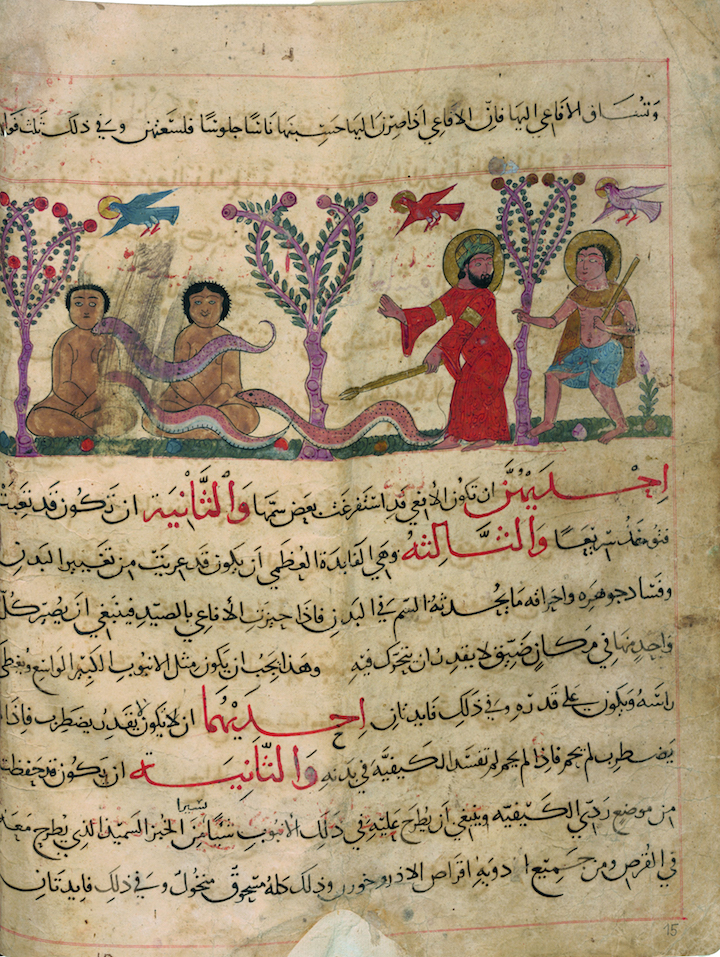 وتساق الأفاعي اليها فانّ الافاعي اذا صرن اليها حسبنها ناسًا جلوسًا فلسعنهن وفي ذلك ثلث فوائد
إحديهنّ ان تكون الافعي قد استفرغت بعض سمّها والثّانية ان تكون قد تعبت
سريعًا والثّالثه وهي الفايدة العظمي أن يكون قد عريت من تغيير البدن
وفساد جوهره واحراقه ما يحدثه السم في البدن فاذا حيزت الأفاعي بالصيد فينبغي ان يصيّر كلّ
واحد منها في مكان ضيّق لا يقدر ان يتحرّك فيه وهذا يجب ان يكون مثل الانبوب الكبير الواسع ويغطي
راسه ويكون علي قدره وفي ذلك فايدتان إحديهما ان لا يكون يقدر يضطرب فاذا لم
يضطرب لم يحم فاذا لم يحم لم تفسد الكيفيّة في بدنه والثّانية ان يكون قد حفظت
من موضع ردي الكيفيّه وينبغي أن يطرح عليه في ذلك الانبوب شيًا يسيرا من الخبز السميذ الذي يطرح معه
في القرص ومن جميع ادوية اقراص الاندروخورون وذلك كله مسحوق منخول وفي ذلك فايدتان
15